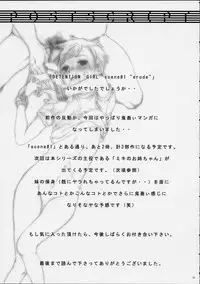 POSTSCRIPT
「DETENTION GIRL scene#1 "erode"」
いかがでしたでしょうか・・
前作の反動か、今回はやっぱり鬼畜いマンガに
なってしまいました・・・
「scene#1」とある通り、あと2冊、計3部作になる予定です。
次回は本シリーズの主役である「ミキのお姉ちゃん」が
出てくる予定です。(次頁参照)
妹の保身(既にヤラれちゃってるんですが・・)を盾に
あんなコトとかこんなコトとかでさらに鬼畜い感じに
なりそうな予感です(笑)
もし気に入った頂けたら、今後しばらくお付き合い下さい。
最後まで読んで下さってありがとうございました。